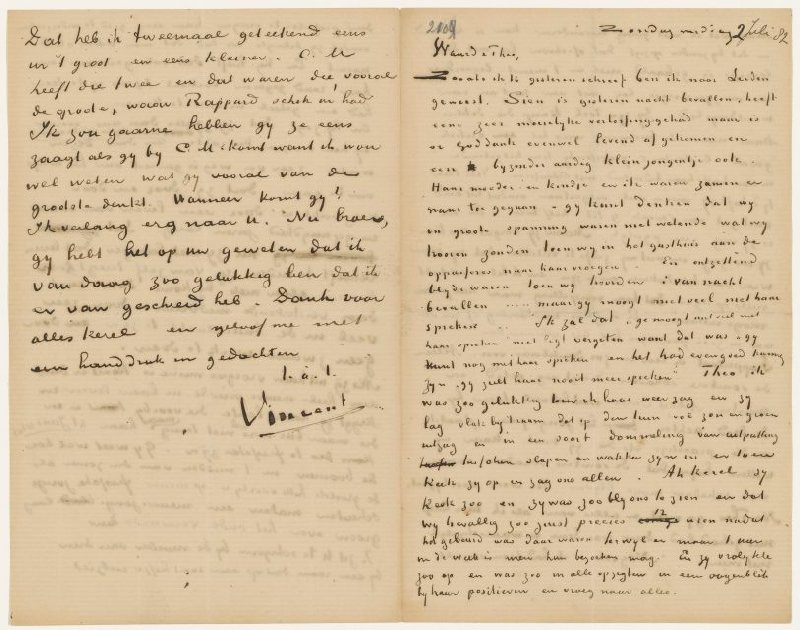 Dat heb ik tweemaal geteekend eens
in 't groot en eens kleiner. C.M.
heeft die twee en dat waren die, vooral
de groote, waar Rappard schik in had
Ik zou gaarne hebben gy ze eens
zaagt als gy by C.M. komt want ik wou
wel weten wat gy vooral van de
grootste denkt. Wanneer komt gy?
Ik verlang erg naar U. Nu broer,
gy hebt het op uw geweten dat ik
van daag zoo gelukkig ben dat ik
er van geschreid heb. Dank voor
alles kerel en geloof me met
een handdruk in gedachten
t. à. t.
Vincent
Zondag middag 2 Juli 82
Waarde Theo,
Zooals ik U gisteren schreef ben ik naar Leiden
geweest. Sien is gisteren nacht bevallen, heeft
eene zeer moeielyke verlossing gehad maar is
er God dank evenwel levend afgekomen en
een byzonder aardig klein jongentje ook.
Haar moeder en kindje en ik waren zamen er
naar toe gegaan – gy kunt denken dat wy
in groote spanning waren niet wetende wat wy
hooren zouden toen wy in het gasthuis aan de
oppassers naar haar vroegen. En ontzettend
blyde waren toen wy hoorden: van nacht
bevallen .... maar gy moogt niet veel met haar
spreken .... Ik zal dat, ge moogt niet veel met
haar spreken niet ligt vergeten want dat was – gy
kunt nog met haar spreken en het had evengoed kunnen
zyn "gy zult haar nooit meer spreken" Theo ik
was zoo gelukkig toen ik haar weer zag en zy
lag vlak by 't raam dat op den tuin vol zon en groen
uitzag en in een soort dommeling van uitputting
tusschen slapen en wakker zyn in en toen
keek zy op en zag ons allen. Ah kerel zy
keek zoo en zy was zoo bly ons te zien en dat
wy toevallig zoo juist precies 12 uren nadat
het gebeurd was daar waren terwyl er maar 1 uur
in de week is men hun bezoeken mag. En zy vrolykte
zoo op en was zoo in alle opzigten in een oogenblik
by haar positieven en vroeg naar alles.